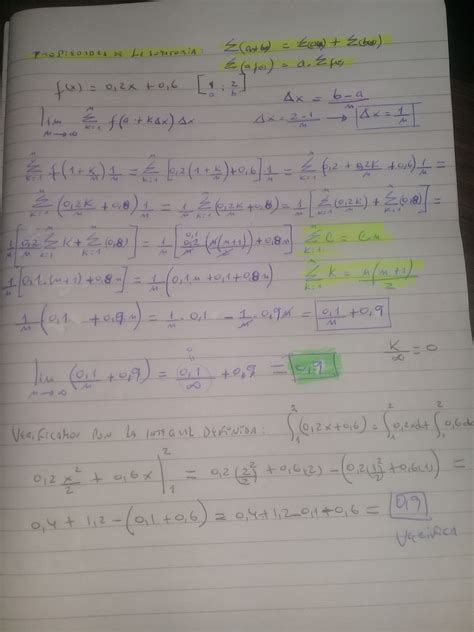 PROPIEDADES DE LA SUMATORIA: Σ(a+b) = Σ(a) + Σ(b)
Σ(a f(x)) = a. Σ f(x)
f(x) = 0,2x + 0,6 [1 ; 2]
a b
Δx = b-a / n
lim n→∞ Σ k=1 n f(a + kΔx) Δx Δx = 2-1 / n → Δx = 1/n
n Σ k=1 f(1 + k/n) 1/n = n Σ k=1 [0,2(1 + k/n) + 0,6] 1/n = n Σ k=1 (0,2 + 0,2k/n + 0,6) 1/n =
n Σ k=1 (0,2k/n + 0,8) 1/n = 1/n n Σ k=1 (0,2k/n + 0,8) = 1/n [n Σ k=1 (0,2k/n) + n Σ k=1 (0,8)] =
1/n [0,2/n n Σ k=1 k + n Σ k=1 (0,8)] = 1/n [0,2/n (n(n+1)/2) + 0,8n] n Σ k=1 C = C.n
1/n [0,1.(n+1) + 0,8n] = 1/n (0,1n + 0,1 + 0,8n) n Σ k=1 k = n(n+1)/2
1/n (0,1 + 0,9n) = 1/n . 0,1 + 1/n . 0,9n = 0,1/n + 0,9
lim n→∞ (0,1/n + 0,9) = 0,1/∞ + 0,9 = 0,9 K/∞ = 0
VERIFICAMOS CON LA INTEGRAL DEFINIDA: ∫ (0,2x + 0,6) = ∫ 1 2 0,2x dx + ∫ 1 2 0,6 dx
0,2 x²/2 + 0,6x | 2 1 = 0,2 (2²/2) + 0,6.2) - (0,2(1²/2) + 0,6(1)) =
0,4 + 1,2 - (0,1 + 0,6) = 0,4 + 1,2 - 0,1 + 0,6 = 0,9
VERIFICA